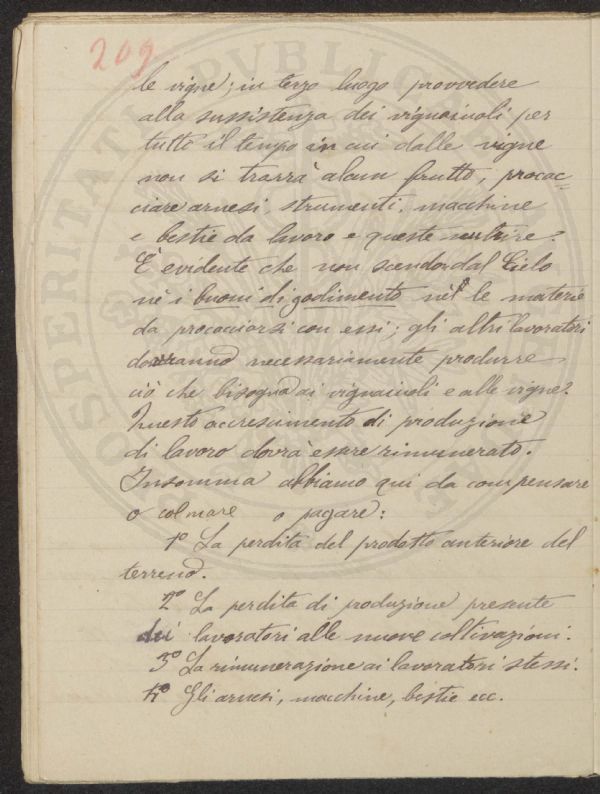 209
le vigne; in terzo luogo provvedere
alla sussistenza dei vignaiuoli per
tutto il tempo in cui dalle vigne
non si trarrà alcun frutto; procac=
ciare arnesi, strumenti, macchine
e bestie da lavoro e queste nutrire.
È evidente che non scendon dal Cielo
nè i buoni di godimento nè le materie
da procacciarsi con essi; gli altri lavoratori
dovranno necessariamente produrre
ciò che bisogna ai vignaiuoli e alle vigne.
Questo accrescimento di produzione
di lavoro dovrà essere rimunerato.
Insomma abbiamo qui da compensare
o colmare o pagare:
1º La perdita del prodotto anteriore del
terreno.
2º La perdita di produzione presente
dei lavoratori alle nuove coltivazioni.
3º La rimunerazione ai lavoratori stessi.
4º Gli arnesi, macchine, bestie ecc.